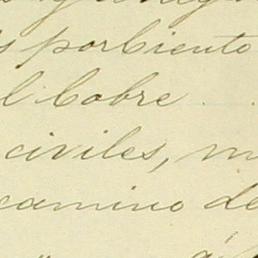 s porciento
l Cobre
civiles, m
camino de